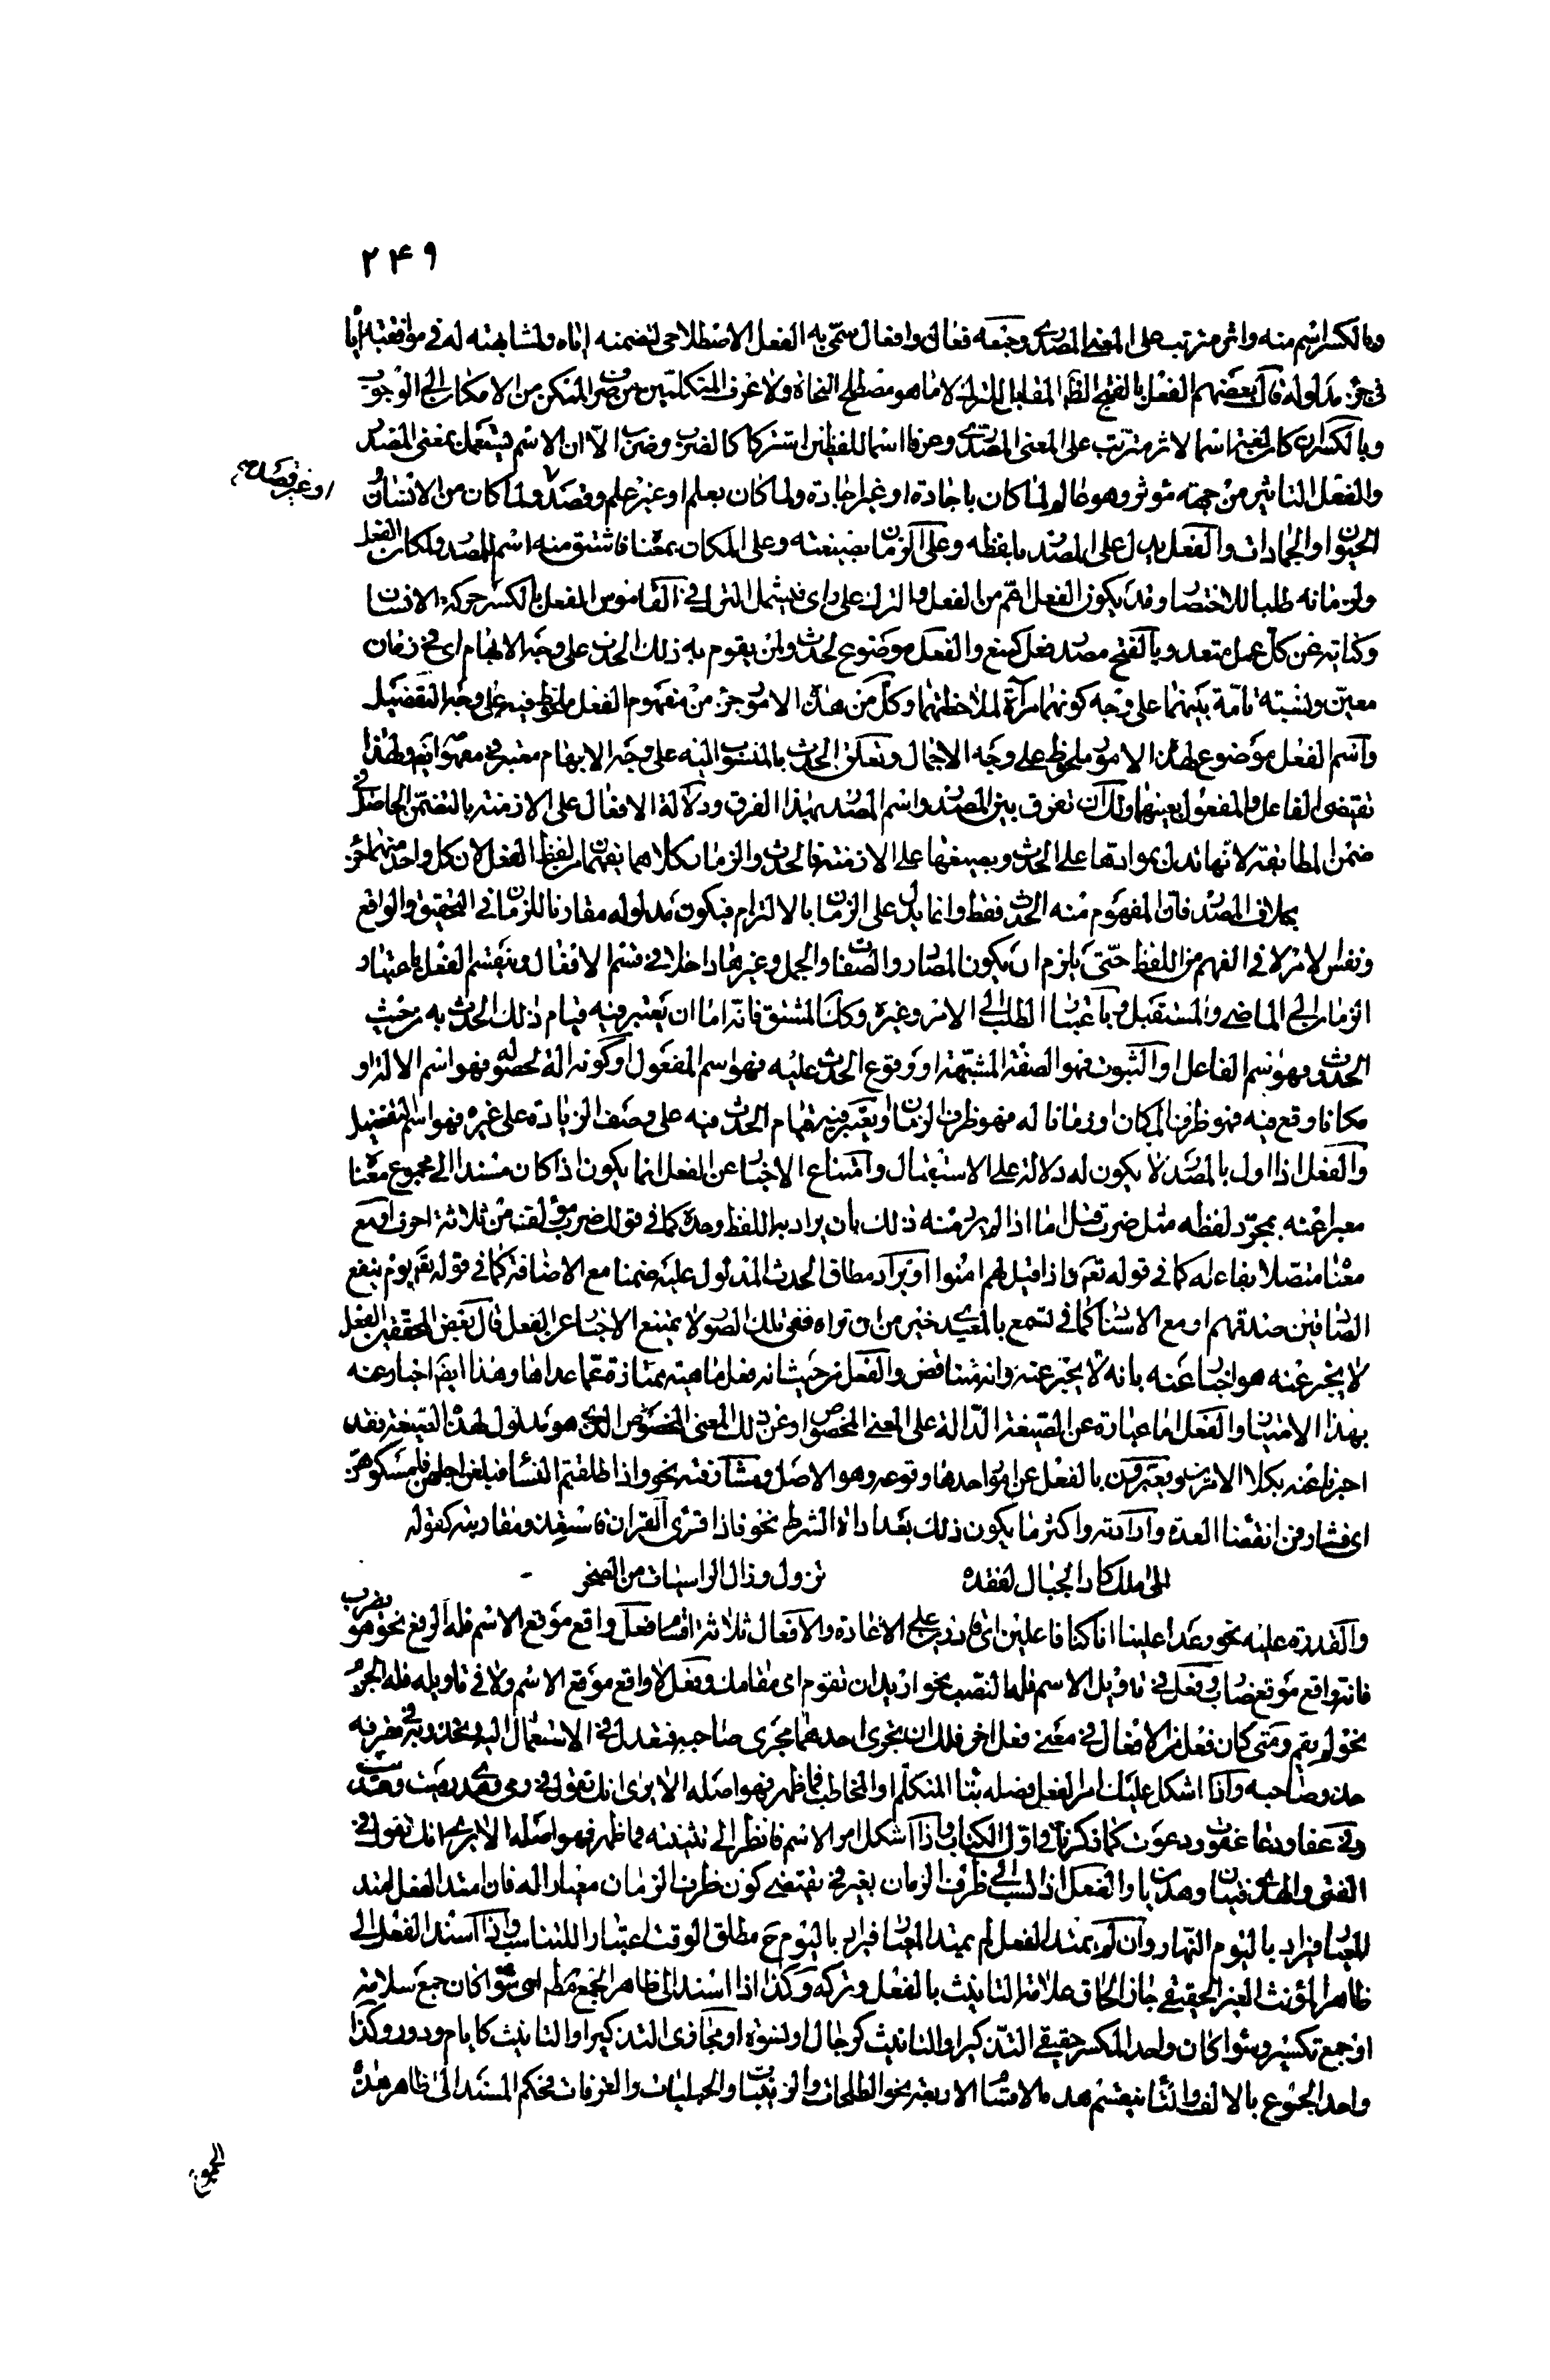 ۲۴۹
وبالكسر اسم منه واثر مترتب على المعنى المصدرى وجمعه فعال وافعال سمى به الفعل الاصطلاحى لتضمنه اياه ولمشابهته له فى موافقته اياه
فى جزء مدلوله قال بعضهم الفعل بالفتح الظاهر المقابل للترك لا ما هو مصطلح النحاة ولا عرف المتكلمين من صرف الممكن من الامكان الى الوجوب
وبالكسر ان كان لغيرها اسما لاثر مترتب على المعنى المصدرى وعرفا اسما للفظين اشتركا كالضرب وضرب الا ان الاسم يستعمل بمعنى المصدر
والفعل التاثير من جهة مؤثر وهو عام لما كان باجادة او غير اجادة ولما كان بعلم او غير علم وقصد ولما كان من الانسان
او غير قصد
الحيوان او الجمادات والفعل يدل على المصدر بلفظه وعلى الزمان بصيغته وعلى المكان بمعناه فاشتق منه اسم للمصدر ولمكان الفعل
ولزمانه طلبا للاختصار وقد يكون الفعل اعم من الفعل والترك على راى فيشمل الترك فى القاموس الفعل بالكسر حركة الانسان
وكناية عن كل عمل متعد وبالفتح مصدر فعل كمنع والفعل موضوع لحدث ولمن يقوم به ذلك الحدث على وجه الابهام اى فى زمان
معين ونسبة تامة بينهما على وجه كونهما مرآة لملاحظتهما وكل من هذه الامور جزء من مفهوم الفعل ملحوظ فيه على وجه التفصيل
واسم الفعل موضوع لهذه الامور ملحوظ على وجه الاجمال وتعلق الحدث بالمنسوب اليه على وجه الابهام معتبر فى مفهومه ايضا ولهذا
يقتضى الفاعل والمفعول بعينهما ولك ان تفرق بين المصدر واسم المصدر بهذا الفرق ودلالة الافعال على الازمنة بالتضمن الحاصل فى
ضمن المطابقة لانها تدل بموادها على الحدث وبصيغها على الازمنة فالحدث والزمان كلاهما يفهمان من لفظ الفعل لان كل واحد منهما جزء
بخلاف المصدر فان المفهوم منه الحدث فقط وانما يدل على الزمان بالالتزام فيكون مدلوله مقارنا للزمان فى التحقيق والواقع
ونفس الامر لا فى الفهم من اللفظ حتى يلزم ان يكون المصادر والصفات والجمل وغيرها داخلا فى قسم الافعال وينقسم الفعل باعتبار
الزمان الى الماضى والمستقبل وباعتبار الطلب الى الامر وغيره وكذا المشتق فانه اما ان يعتبر فيه قيام ذلك الحدث به من حيث
الحدوث فهو اسم الفاعل او الثبوت فهو الصفة المشبهة او وقوع الحدث عليه فهو اسم المفعول او كونه الة لحصوله فهو اسم الالة او
مكانا وقع فيه فهو ظرف المكان او زمانا له فهو ظرف الزمان او يعتبر فيه قيام الحدث فيه على وصف الزيادة على غيره فهو اسم التفضيل
والفعل اذا اول بالمصدر لا يكون له دلالة على الاستقبال وامتناع الاخبار عن الفعل انما يكون اذا كان مسندا الى مجموع معناه
معبرا عنه بمجرد لفظه مثل ضرب قتل اما اذا لم يرد منه ذلك بان يراد به اللفظ وحده كما فى قولك ضرب مؤلف من ثلاثة احرف او مع
معناه متصلا بفاعله كما فى قوله تعالى واذا قيل لهم امنوا او يراد مطلق الحدث المدلول عليه ضمنا مع الاضافة كما فى قوله تعالى يوم ينفع
الصادقين صدقهم او مع الاسناد كما فى تسمع بالمعيدى خير من ان تراه ففى تلك الصور لا يمتنع الاخبار عن الفعل قال بعض المحققين الفعل
لا يخبر عنه هو اخبار عنه بانه لا يخبر عنه وانه متناقض والفعل من حيث انه فعل ماهيته ممتازة عما عداها وهذا ايضا اخبار عنه
بهذا الامتياز والفعل اما عبارة عن الصيغة الدالة على المعنى المخصوص او عن ذلك المعنى المخصوص الذى هو مدلول لهذه الصيغة فقد
اخبرنا عنه بكلا الامرين ويعبرون بالفعل عن امور احدها وقوعه وهو الاصل ومشارفته نحو واذا طلقتم النساء فبلغن اجلهن فامسكوهن
اى فشارفن انقضاء العدة وارادته واكثر ما يكون ذلك بعد اداة الشرط نحو فاذا قرئ القران فاستعذ ومقاربته كقوله
الى ملك كاد الجبال لفقده    تزول وزال الراسيات من الصخر
والقدرة عليه نحو وعدا علينا انا كنا فاعلين اى قادرين على الاعادة والافعال ثلاثة اقسام فعل واقع موقع الاسم فله الرفع نحو هو يضرب
فانه واقع موقع ضارب وفعل فى تاويل الاسم فله النصب نحو اريد ان تقوم اى مقامك وفعل لا واقع موقع الاسم ولا فى تاويله فله الجزم
نحو لم يقم ومتى كان فعل من الافعال فى معنى فعل اخر فلك ان تجرى احدهما مجرى صاحبه فتعدل فى الاستعمال اليه وتحذو به فى تصرفه
حذو صاحبه واذا اشكل عليك امر الفعل فصله بتاء المتكلم او المخاطب فما ظهر فهو اصله الا يرى انك تقول فى رمى وهدى رميت وهديت
وفى عفا ودعا عفوت ودعوت كما ذكرنا فى اول الكتاب واذا اشكل امر الاسم فانظر الى تثنيته فما ظهر فهو اصله الا يرى انك تقول فى
الفتى والهدى فتيان وهديان والفعل اذا نسب الى ظرف الزمان بغير فى يقتضى كون ظرف الزمان معيارا له فان امتد الفعل امتد
المعيار فيراد باليوم النهار وان لم يمتد الفعل لم يمتد المعيار فيراد باليوم ح مطلق الوقت اعتبارا للتناسب واذا اسند الفعل الى
ظاهر المؤنث الغير الحقيقى جاز الحاق علامة التانيث بالفعل وتركه وكذا اذا اسند الى ظاهر الجمع مطلقا اى سواء كان جمع سلامة
او جمع تكسير وسواء كان واحد المكسر حقيقى التذكير او التانيث كرجال او نسوة او مجازى التذكير او التانيث كايام ودور وكذا
واحد المجموع بالالف والتاء ينقسم هذه الاقسام الاربعة نحو الطلحات والزينبات والجبيلات والغرفات فحكم المسند الى ظاهر هذه
الجموع